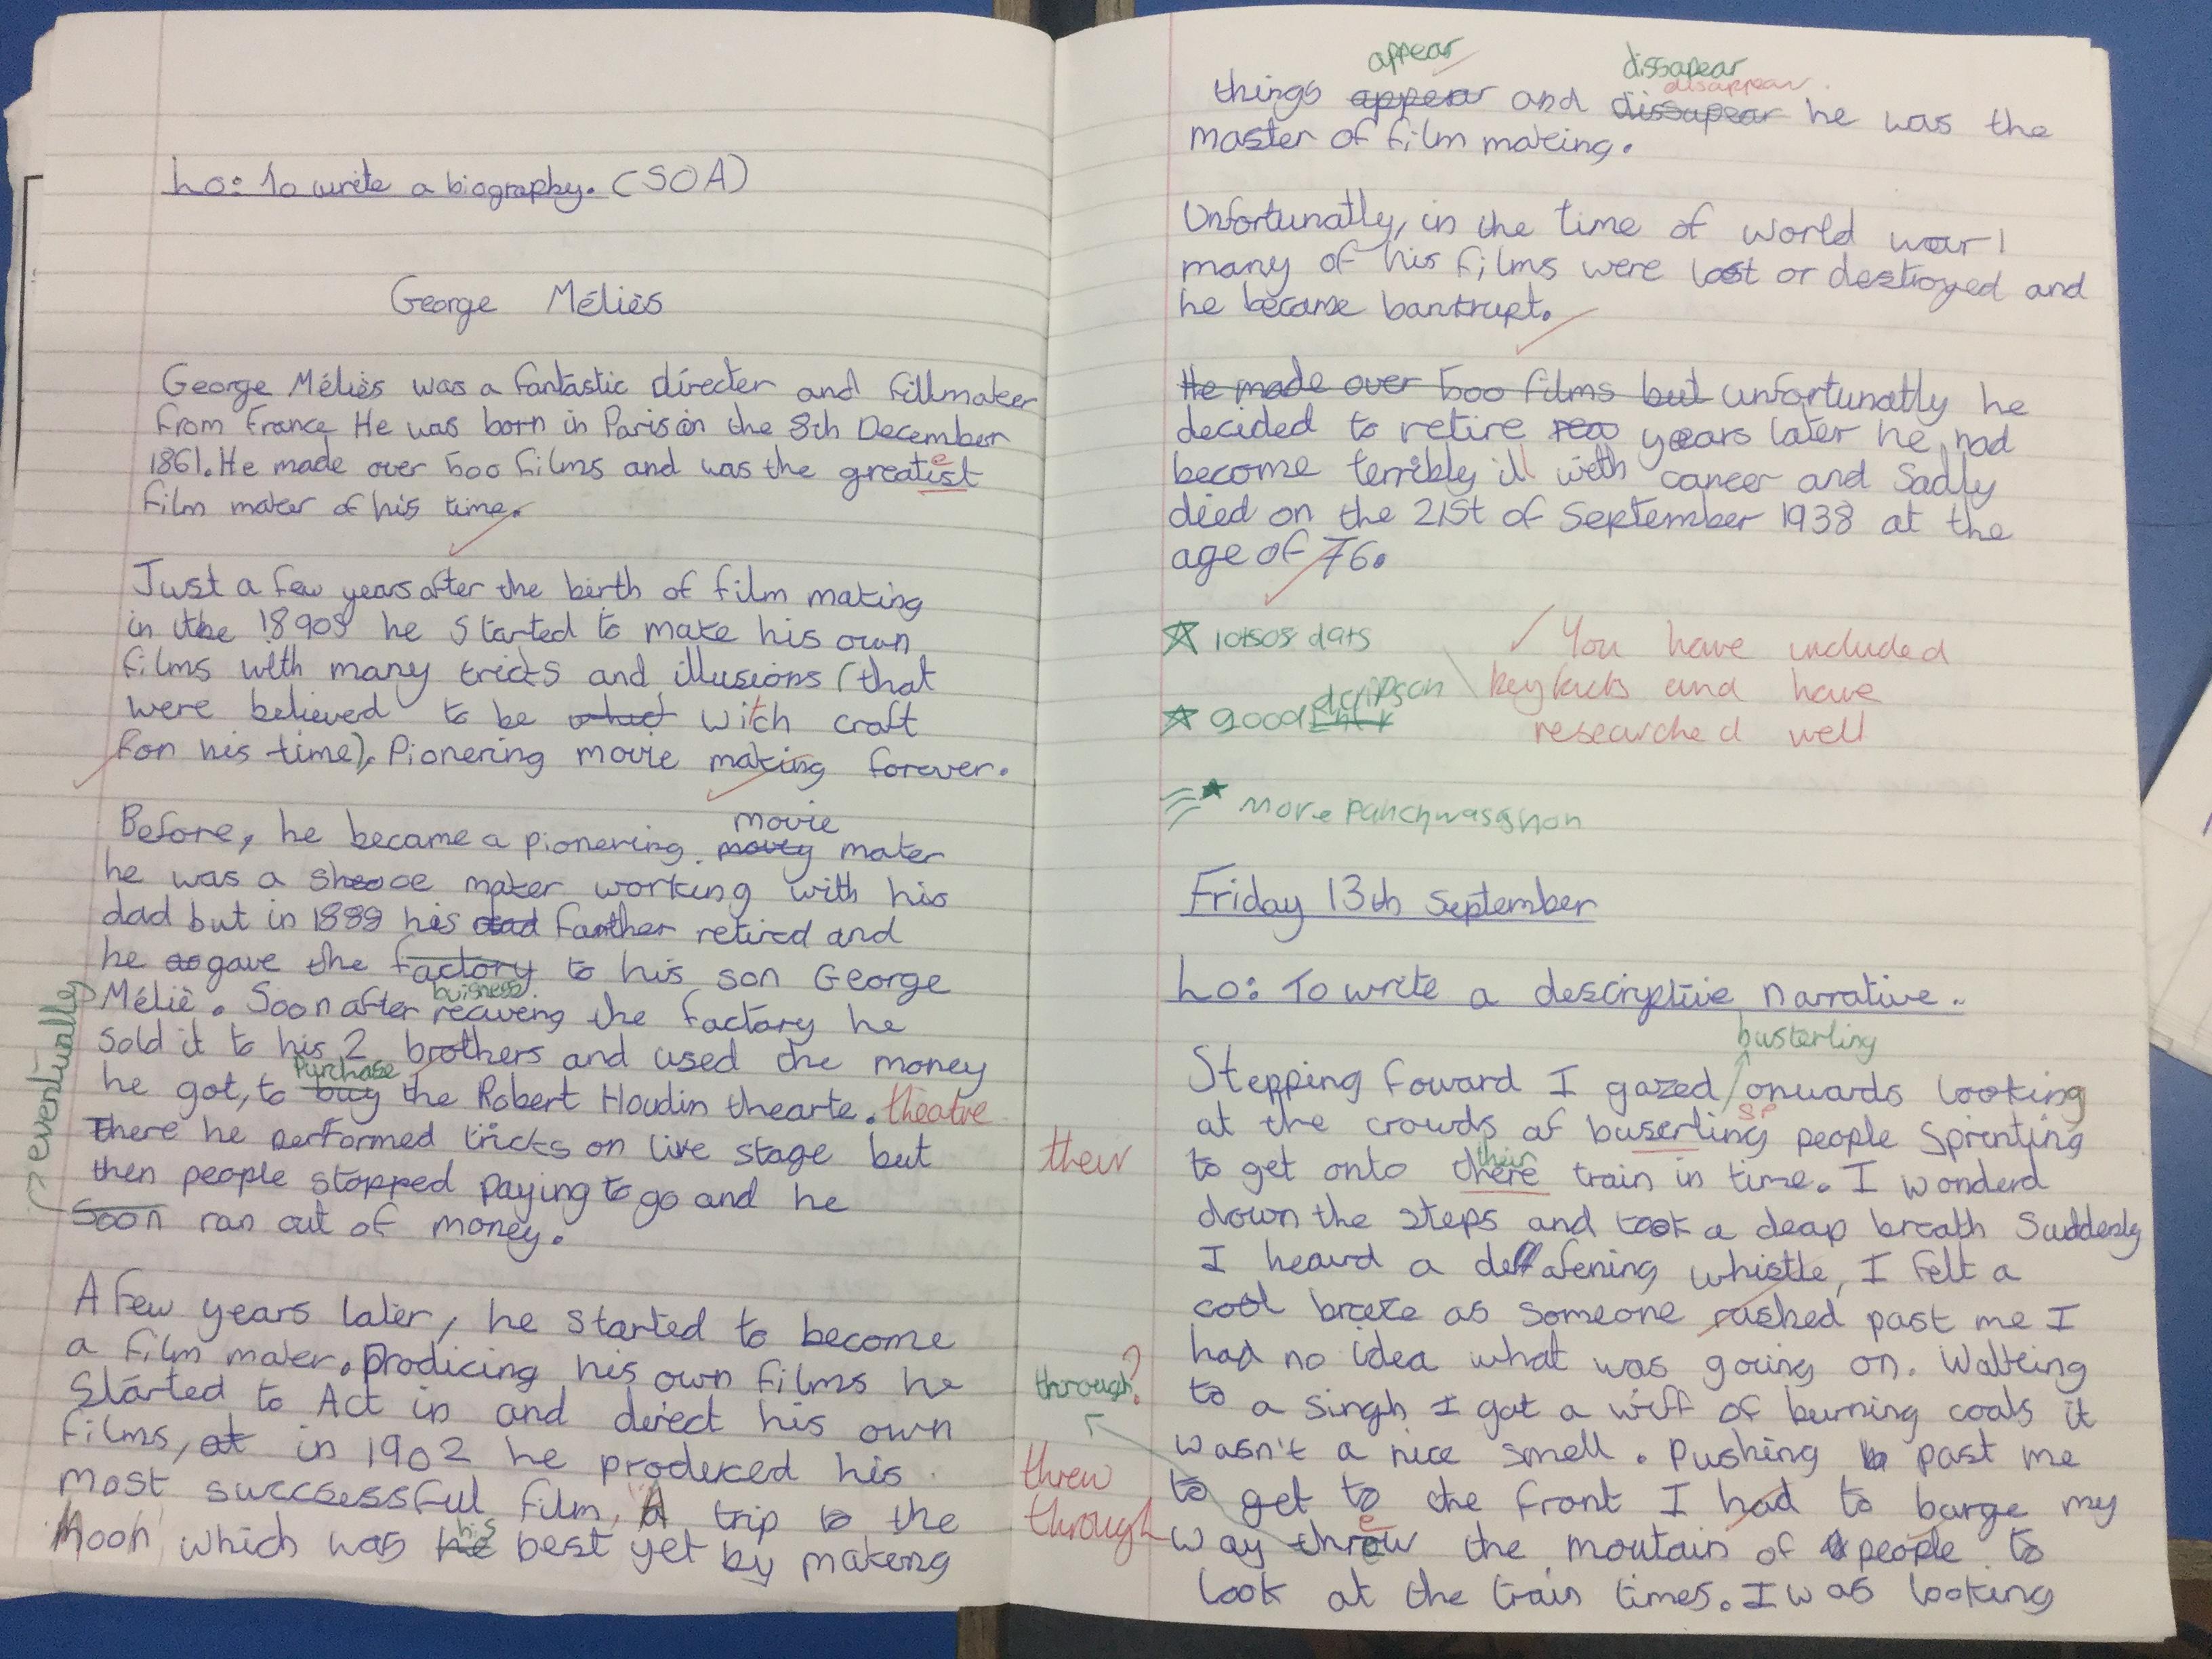 Lo: To write a biography. (SOA)
George Méliès
George Méliès was a fantastic directer and fillmaker
from France He was born in Paris in the 8th December
1861. He made over 500 films and was the greatist
e
film maker of his time.
Just a few years after the birth of film making
in the 1890s he started to make his own
films with many tricks and illusions (that
were believed to be witch craft
for his time). Pionering movie making forever.
movie
Before, he became a pionering movey maker
he was a shoe maker working with his
dad but in 1888 his dad farther retired and
he gave the factory to his son George
buisness
Mélie. Soon after reciveng the factory he
sold it to his 2 brothers and used the money
Purchase
he got, to buy the Robert Houdin thearte. theatre
There he performed tricks on live stage but
then people stopped paying to go and he
eventually
soon ran out of money.
A few years later, he started to become
a film maker. Prodicing his own films he
started to Act in and direct his own
films, at in 1902 he produced his
most successful film, 'A trip to the
his
Moon' which was he best yet by making
appear dissapear
disappear
things appear and dissapear he was the
master of film making.
Unfortunatly, in the time of world war 1
many of his films were lost or destroyed and
he became bankrupt.
He made over 500 films but unfortunatly he
decided to retire years later he had
become terribly ill with cancer and Sadly
died on the 21st of September 1938 at the
age of 76.
lotsos dats
good
more panchwasshon
✓ You have included
key facts and have
researched well
Friday 13th September
Lo: To write a descriptive narrative.
busterling
Stepping foward I gazed onwards looking
sp
at the crowds of buserling people sprinting
their
their
to get onto there train in time. I wonderd
down the steps and took a deap breath Suddenly
I heard a deafening whistle, I felt a
cool breeze as someone rushed past me I
had no idea what was going on. Walking
through?
to a singh I got a wiff of burning coals it
wasn't a nice smell. Pushing past me
threw
to get to the front I had to barge my
through
way threw the moutain of people to
look at the train times. I was looking